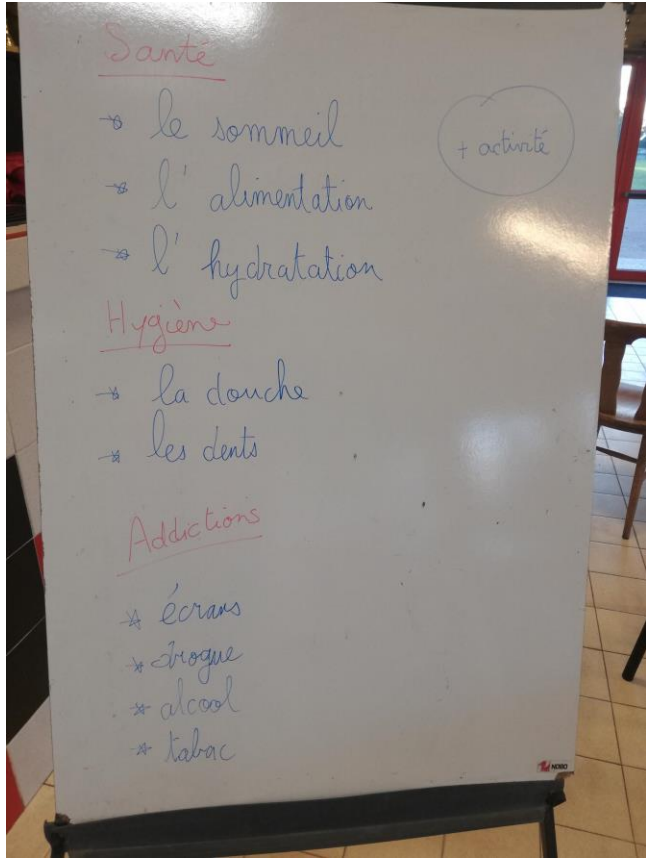 Santé
le sommeil
+ activité
l'alimentation
l'hydratation
Hygiène
la douche
les dents
Addictions
écrans
drogue
alcool
tabac
NOBO